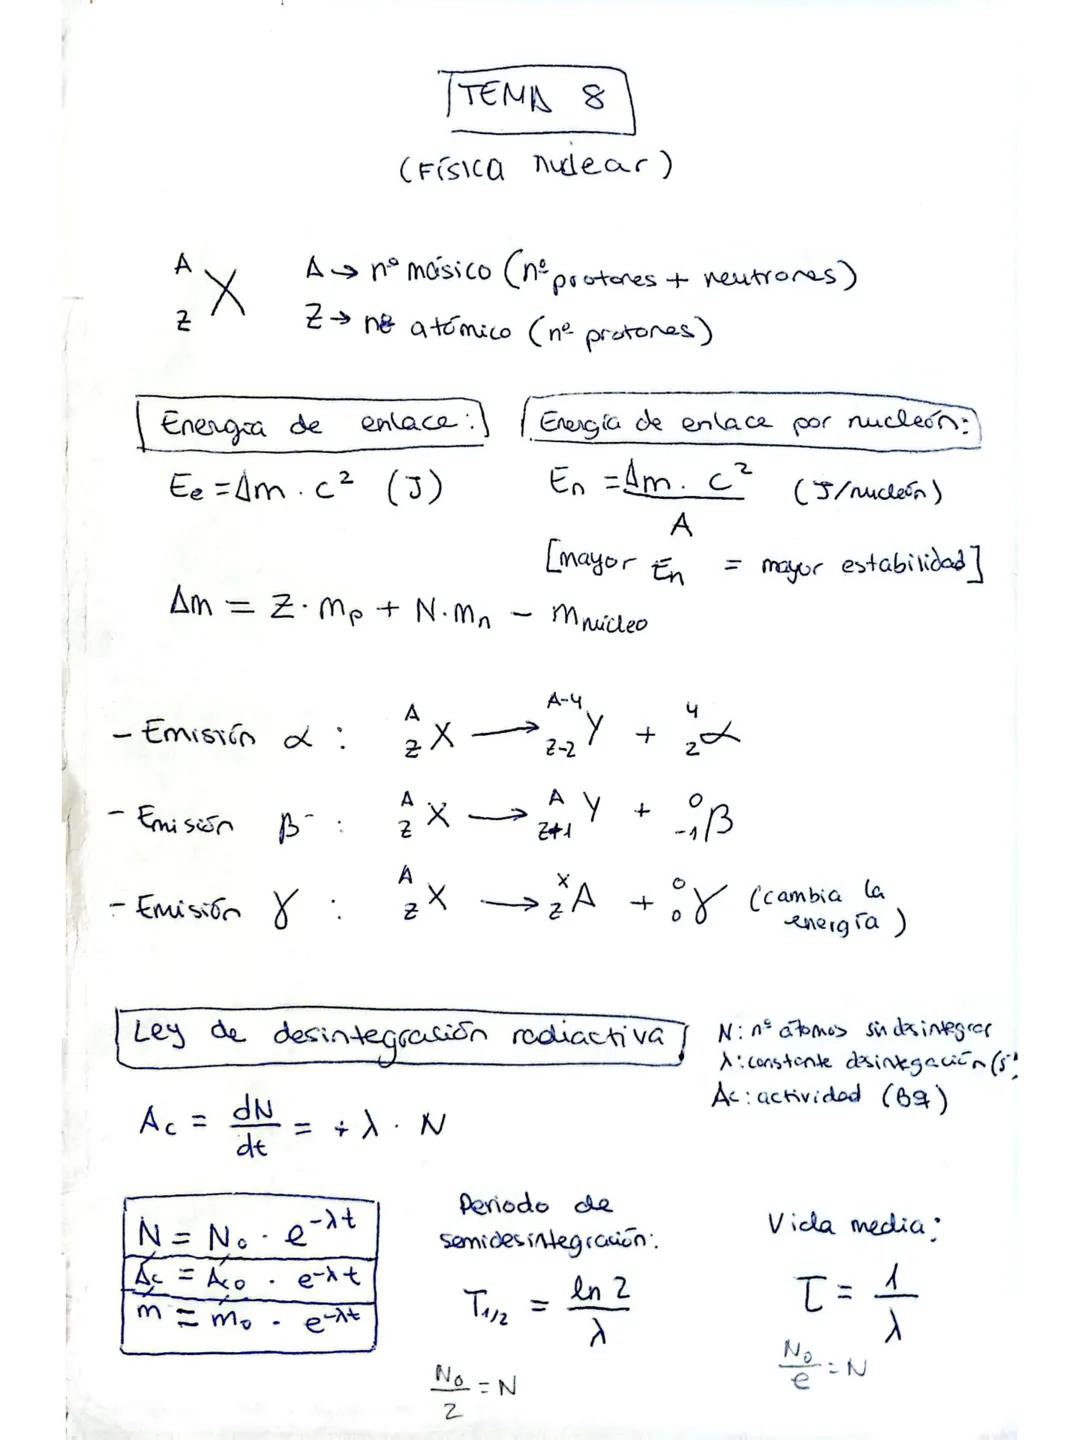 TEMA 8
(Física nuclear)
A
Z X
A → nº másico (nº protones + neutrones)
Z → nº atómico (nº protones)
Energía de enlace:
Ee = Δm · c² (J)
Energía de enlace por nucleón:
En = Δm · c² / A (J/nucleón)
[mayor En = mayor estabilidad]
Δm = Z · mp + N · mn - mnúcleo
- Emisión α : ᴬ_Z X → ᴬ⁻⁴_Z-2 Y + ⁴_2 α
- Emisión β⁻ : ᴬ_Z X → ᴬ_Z+1 Y + ⁰_-1 β
- Emisión γ : ᴬ_Z X → ˣ_Z A + ⁰_0 γ (cambia la
energía)
Ley de desintegración radiactiva
N: nº átomos sin desintegrar
λ: constante desintegación (s⁻¹
Ac: actividad (Bq)
Ac = dN/dt = + λ · N
N = N₀ · e^-λt
Ac = Ac₀ · e^-λt
m = m₀ · e^-λt
Periodo de
semidesintegración:
T1/2 = ln 2 / λ
N₀/2 = N
Vida media:
τ = 1/λ
N₀/e = N